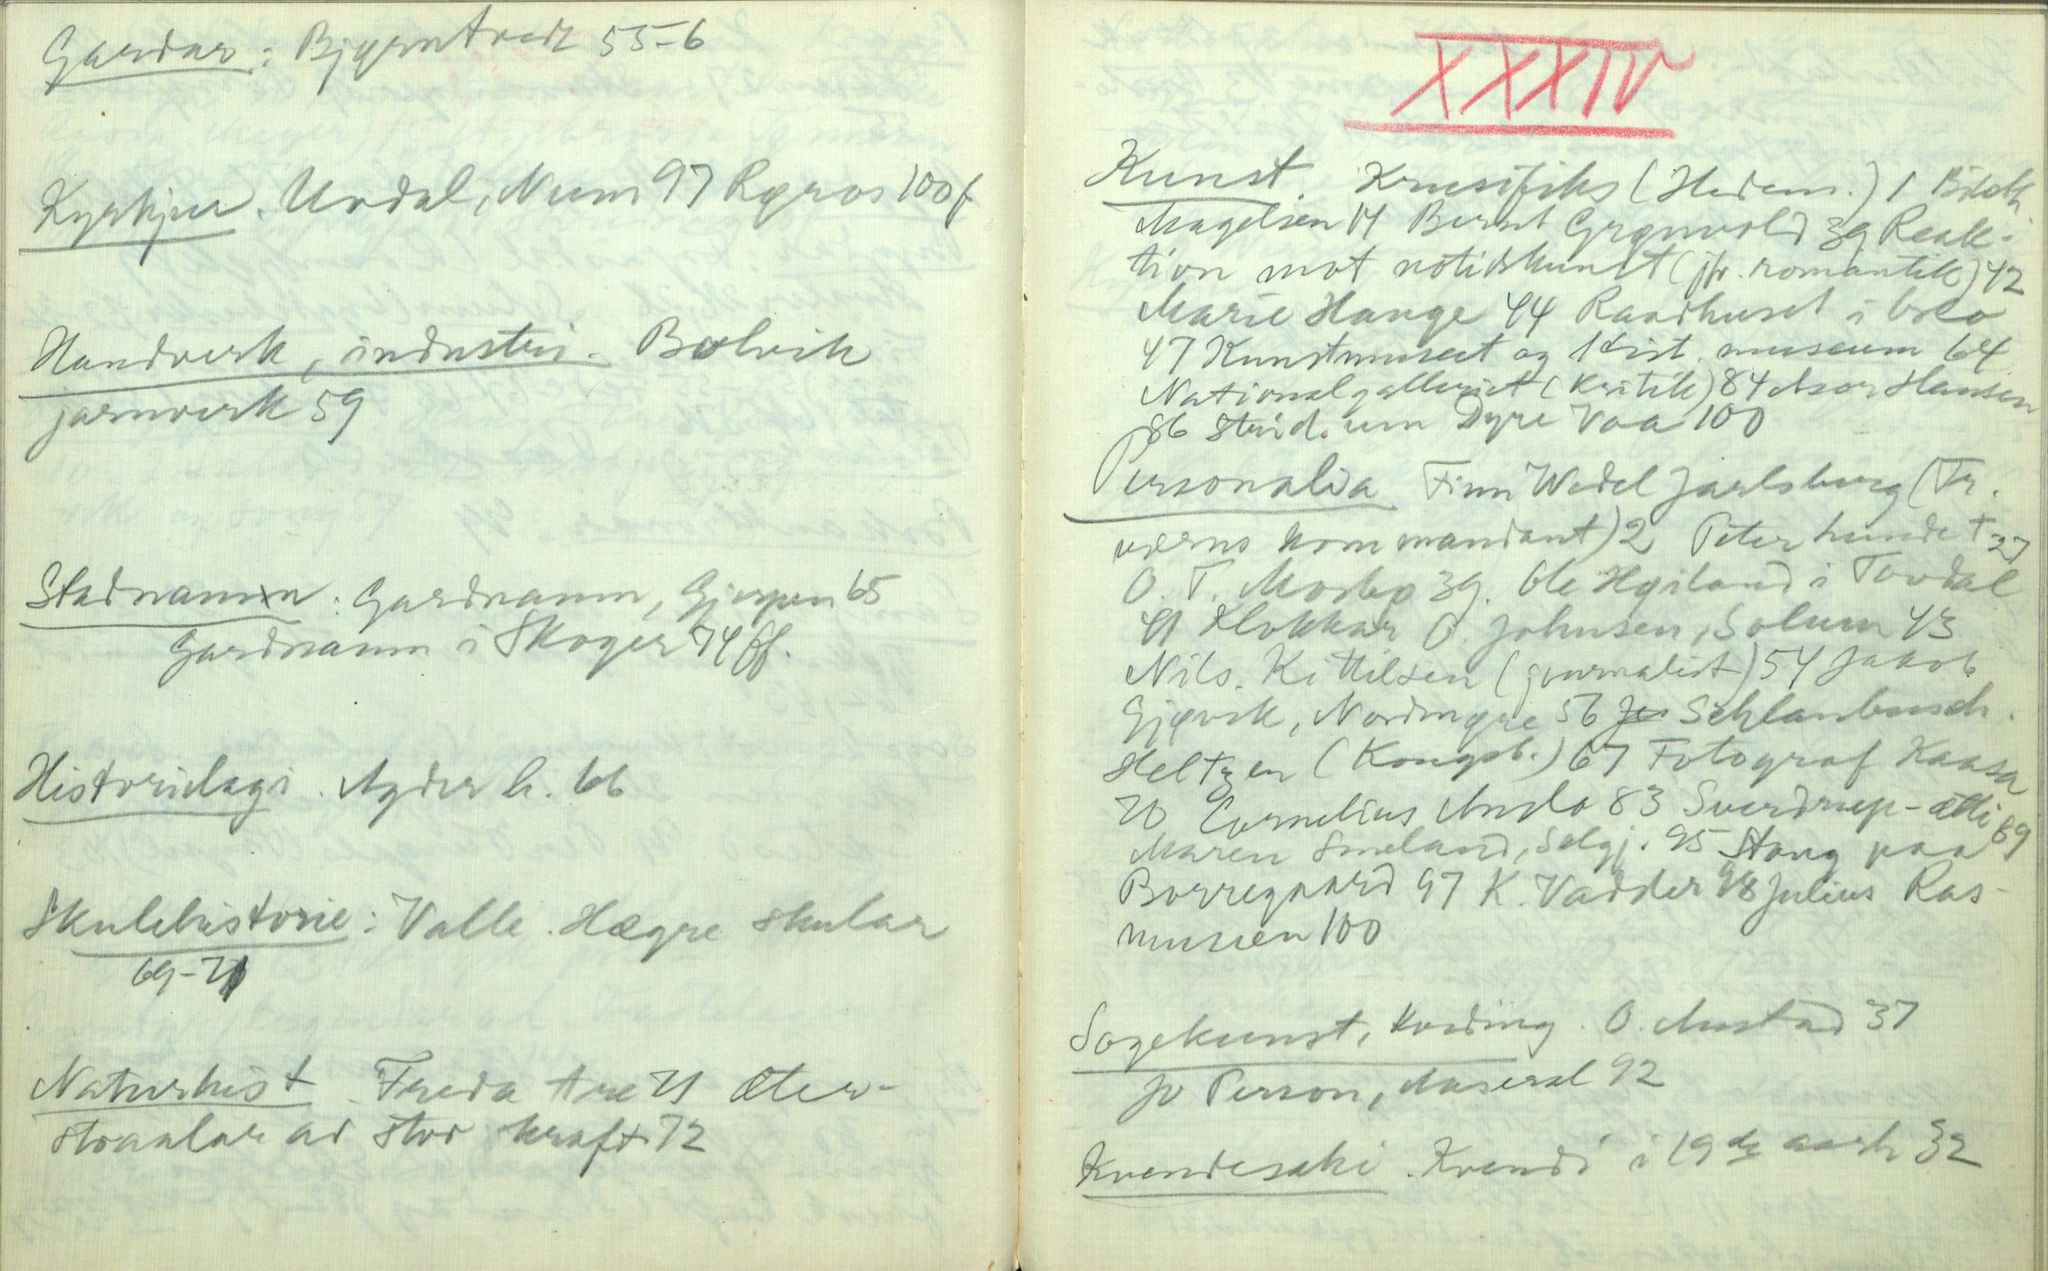 Gardar: Bjørntvedt 55-6
Kyrkjur. Uvdal, Num 97 Røros 100 f
Handverk, industri. Bolvik
jarnverk 59
Stadnamn: Gardnamn, Gjerpen 65
Gardnamn i Skoger 74 ff.
Historielagi. Agder h. 66
Skulehistorie: Valle. Høgre skular
69-71
Naturhist. Freda tre 71 Æter-
straalar ad stor kraft 72
XXXIV
Kunst. Krusifiks (Hedem.) 1 Bildh.
Magelsen 14 Bernt Grønvold 39 Reak-
tion mot notidskunst (jfr. romantik) 42
Marie Hauge 44 Raadhuset i Oslo
47 Kunstmuseet og hist. museum 64
Nationalgalleriet (kritik) 84 Aasor Hansen
86 Strid. um Dyre Vaa 100
Personalia Finn Wedel Jarlsberg (Tr.
verns kommandant) 2 Peter hundet 27
O. T. Mosbø 39. Ole Høiland i Tovdal
41 Klokkar O. Johnsen, Solum 43
Nils. Kittilsen (journalist) 54 Jakob
Gjøvik, Nordmøre 56 Schlanbusch.
Heltzen (Kongsb.) 67 Fotograf Kaasa
70 Cornelius Moslo 83 Sverdrup-ætti 89
Maren Smeland, Selgj. 95 Stang paa
Borregaard 97 K. Vadder 98 Julius Ras-
mussen 100
Sogekunst, kveding. O. Austad 37
Jo Person, Aaseral 92
Kvendesaki. Kvendi i 19de aarh 32